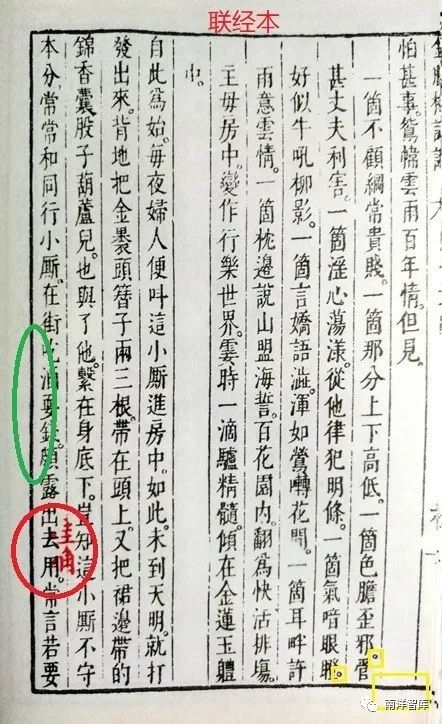 联经本
怕甚事。鴛幃雲雨百年情。但見。
一箇不顧綱常貴賤。一箇那分上下高低。一箇色膽歪邪。管
甚丈夫利害。一箇淫心蕩漾。從他律犯明條。一箇氣暗眼瞪。
好似牛吼柳影。一箇言嬌語澁。渾如鶯囀花間。一箇耳畔許
雨意雲情。一箇枕邊說山盟海誓。百花園內。翻為快活排塲。
主母房中。變作行樂世界。霎時一滴驢精髓。傾在金蓮玉體
中。
自此為始。每夜婦人便叫這小厮進房中。如此。未到天明。就打
發出來。背地把金裹頭簪子兩三根帶在頭上。又把裙邊帶的
錦香囊股子葫蘆兒。也與了他。繫在身底下。豈知這小厮不守
本分。常常和同行小厮。在街吃酒耍錢。頗露出去用。常言若要
圭角
南洋智库